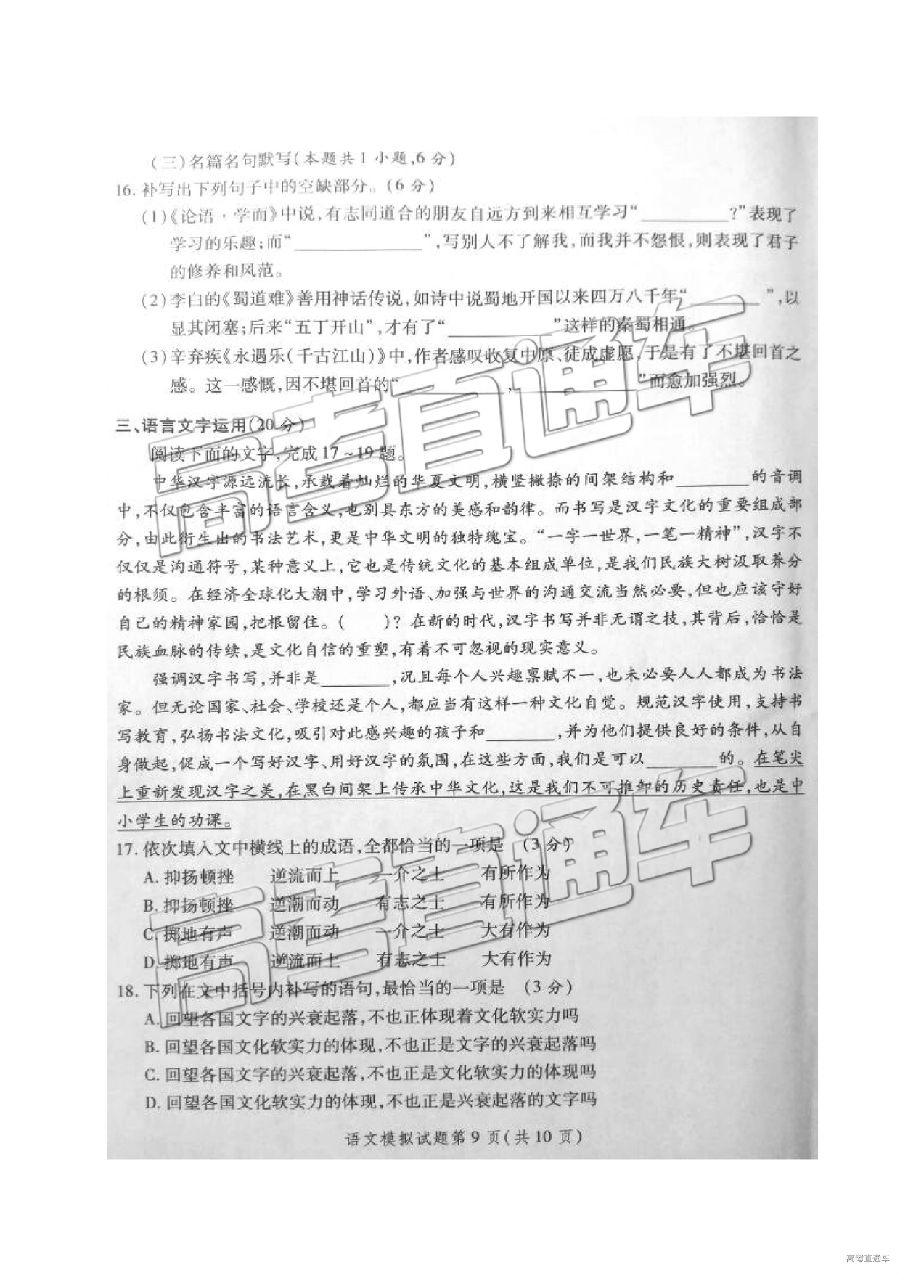 (三)名篇名句默写(本题共1小题,6分)
16. 补写出下列句子中的空缺部分。(6分)
(1)《论语·学而》中说,有志同道合的朋友自远方到来相互学习“__________?”表现了
学习的乐趣;而“______________”,写别人不了解我,而我并不怨恨,则表现了君子
的修养和风范。
(2)李白的《蜀道难》善用神话传说,如诗中说蜀地开国以来四万八千年“________”,以
显其闭塞;后来“五丁开山”,才有了“____________”这样的秦蜀相通。
(3)辛弃疾《永遇乐(千古江山)》中,作者感叹收复中原、徒成虚愿,于是有了不堪回首之
感。这一感慨,因不堪回首的“____________,____________”而愈加强烈。
三、语言文字运用(20分)
阅读下面的文字,完成17~19题。
中华汉字源远流长,承载着灿烂的华夏文明,横竖撇捺的间架结构和________的音调
中,不仅包含丰富的语言含义,也别具东方的美感和韵律。而书写是汉字文化的重要组成部
分,由此衍生出的书法艺术,更是中华文明的独特瑰宝。“一字一世界,一笔一精神”,汉字不
仅仅是沟通符号,某种意义上,它也是传统文化的基本组成单位,是我们民族大树汲取养分
的根须。在经济全球化大潮中,学习外语、加强与世界的沟通交流当然必要,但也应该守好
自己的精神家园,把根留住。(    )?在新的时代,汉字书写并非无谓之技,其背后,恰恰是
民族血脉的传续,是文化自信的重塑,有着不可忽视的现实意义。
强调汉字书写,并非是________,况且每个人兴趣禀赋不一,也未必要人人都成为书法
家。但无论国家、社会、学校还是个人,都应当有这样一种文化自觉。规范汉字使用,支持书
写教育,弘扬书法文化,吸引对此感兴趣的孩子和________,并为他们提供良好的条件,从自
身做起,促成一个写好汉字、用好汉字的氛围,在这些方面,我们是可以________的。在笔尖
上重新发现汉字之美,在黑白间架上传承中华文化,这是我们不可推卸的历史责任,也是中
小学生的功课。
17. 依次填入文中横线上的成语,全都恰当的一项是 (3分)
A. 抑扬顿挫 逆流而上 一介之士 有所作为
B. 抑扬顿挫 逆潮而动 有志之士 有所作为
C. 掷地有声 逆潮而动 一介之士 大有作为
D. 掷地有声 逆流而上 有志之士 大有作为
18. 下列在文中括号内补写的语句,最恰当的一项是 (3分)
A. 回望各国文字的兴衰起落,不也正体现着文化软实力吗
B. 回望各国文化软实力的体现,不也正是文字的兴衰起落吗
C. 回望各国文字的兴衰起落,不也正是文化软实力的体现吗
D. 回望各国文化软实力的体现,不也正是兴衰起落的文字吗
语文模拟试题第9页(共10页)
高考直通车
高考直通车
高考直通车